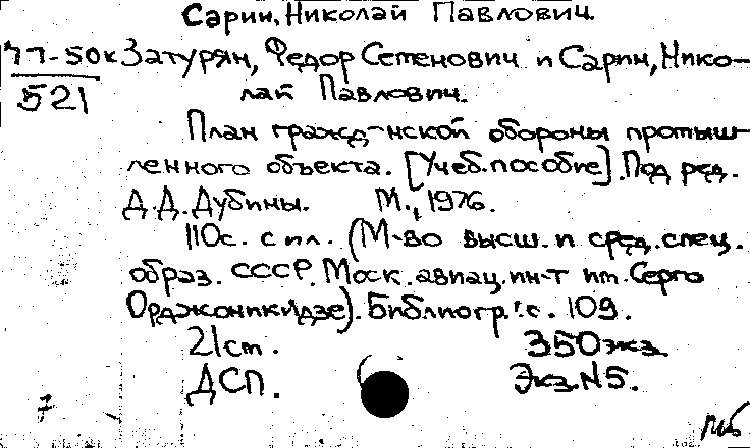 Сарин, Николай Павлович.
77-50к Затурян, Федор Семенович и Сарин, Нико-
521 лай Павлович.
План гражд-нской обороны промыш-
ленного объекта. [Учеб. пособие]. Под ред.
Д.Д. Дубины. М., 1976.
110с. с ил. (М-во высш. и сред. спец.
образ. СССР. Моск. авиац. ин-т им. Серго
Орджоникидзе). Библиогр.: с. 109.
21см. 350 экз.
ДСП. Экз. N5.
7